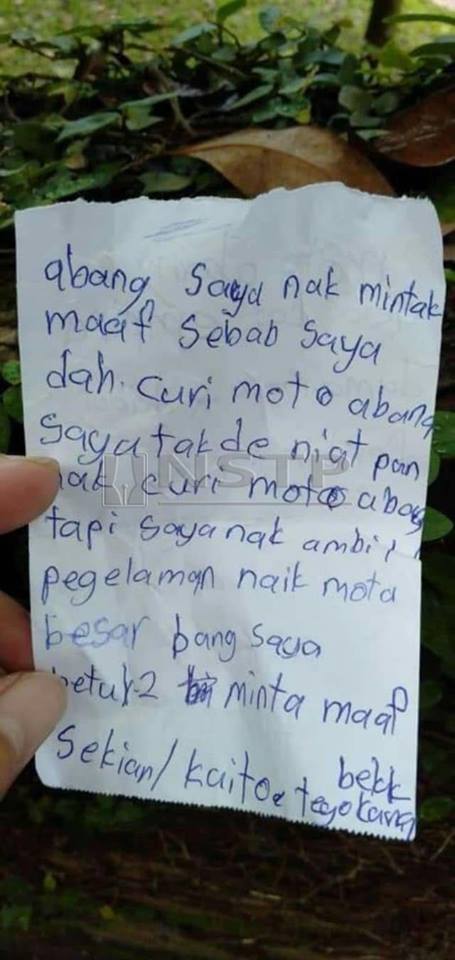 abang saya nak mintak
maaf sebab saya
dah. curi moto abang
saya tak de niat pon
nak curi moto abang
NSTP
tapi saya nak ambil
pegelaman naik moto
besar bang saya
betul-2 minta maaf
Sekian/ kaitoe
bekk